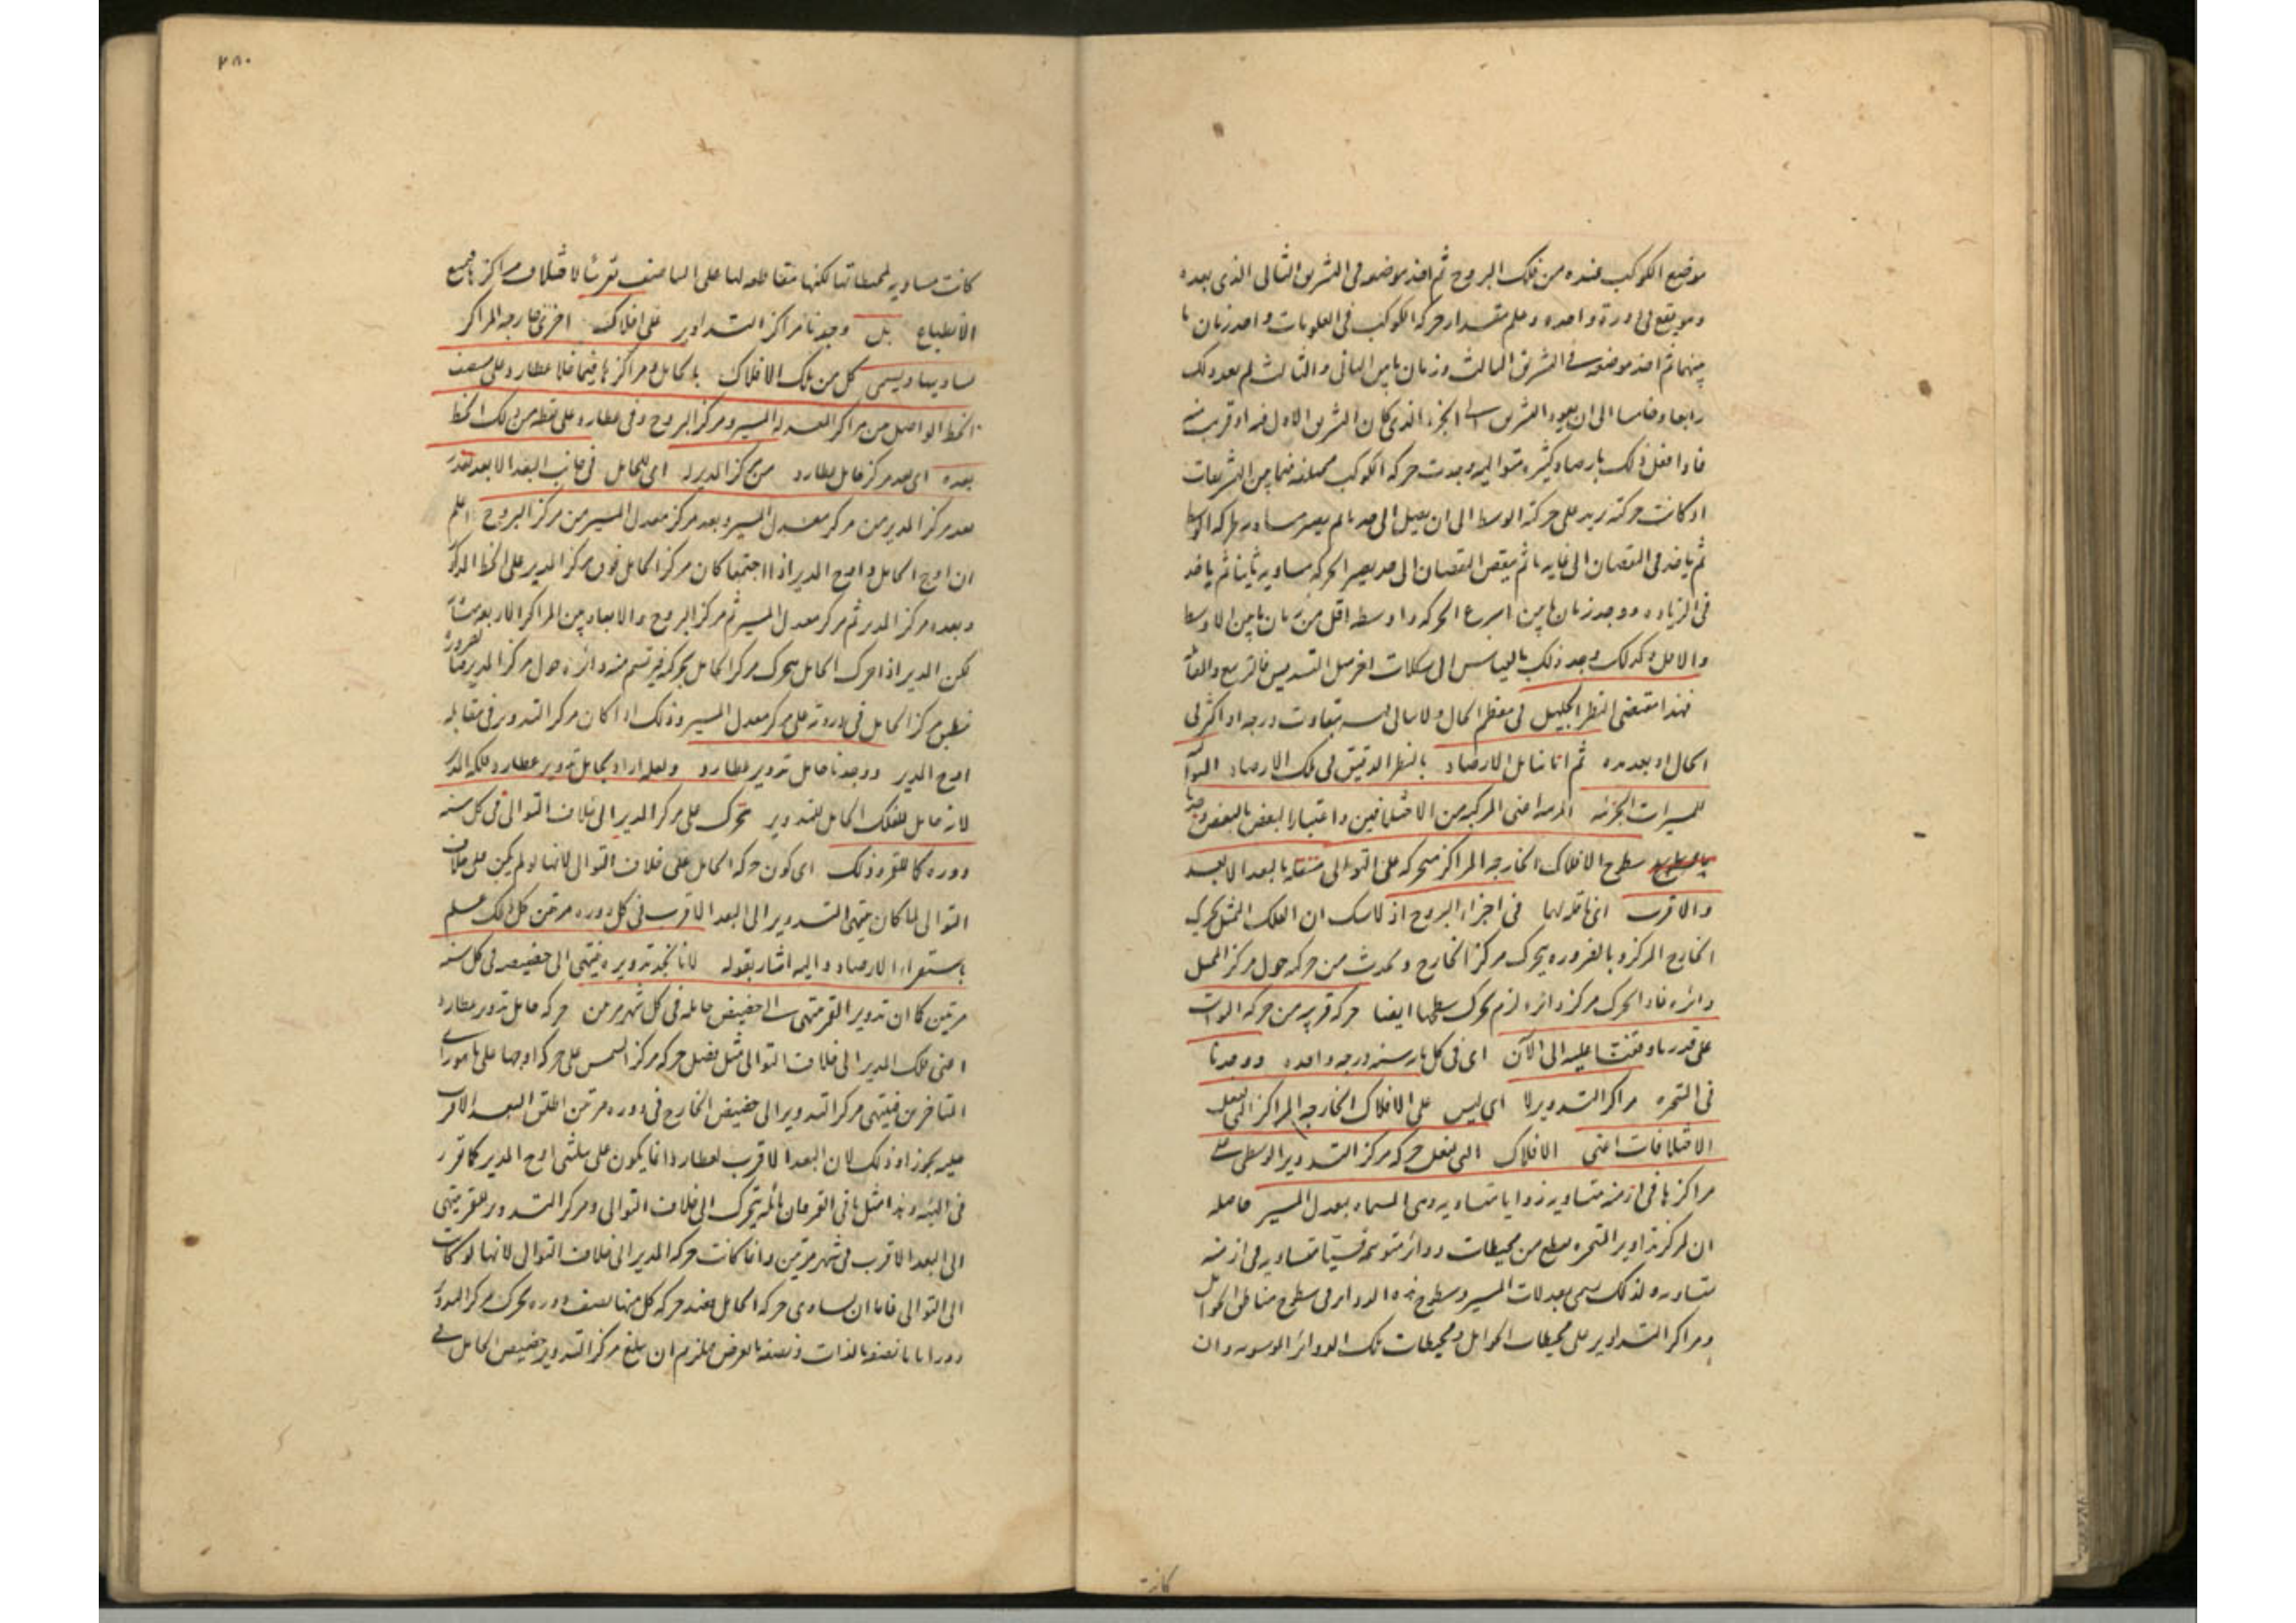 موضع الكوكب عنده من فلك البروج ثم اخذ موضعه فى التشريق الثانى الذى بعده
و يقع فى دورة واحدة وعلم مقدار حركة الكوكب فى العلويات واحد زمان ما
بينهما ثم اخذ موضعه فى التشريق الثالث وزمان ما بين الثانى والثالث ثم بعد ذلك
رابعا وخامسا الى ان يعود التشريق الى الجزء الذى كان التشريق الاول فيه او قريب منه
فاذا فعل ذلك بارصاد كثيرة متوالية وجدت حركة الكوكب مختلفة فيما بين التشريقات
اذ كانت حركته تزيد على حركة الوسط الى ان يصل الى حد ما ثم يصير مساوية لحركة الوسط
ثم ياخذ فى النقصان الى غاية ما ثم ينقص النقصان الى حد يصير الحركة مساوية ثانيا ثم ياخذ
فى الزيادة ووجد زمان ما بين اسرع الحركة واوسطه اقل من زمان ما بين الاوسط
والاقل وكذلك وجد ذلك بالقياس الى شكلات اخر مثل التسديس والتربيع والمقابلة
فهذا مقتضى النظر الجليل فى معظم الحال ولا يبالى فيه بتفاوت درجة او اكثر فى
الحال او بعد مدة ثم انا نتامل الارصاد بالنظر الدقيق فى تلك الارصاد المتوالية
للمسيرات الجزئية المرصدة اعنى المركبة من الاختلافين واعتبار البعض بالبعض وجدنا
سطوح الافلاك الخارجة المراكز متحركة على التوالى منتقلة بالبعد الابعد
والاقرب اى ناقلة لهما فى اجزاء البروج اذ لا شك ان الفلك الممثل يحرك
الخارج المركز وبالضرورة يتحرك مركز الخارج ويحدث من حركته حول مركز الممثل
دائرة فاذا تحرك مركز دائرة لزم تحرك سطحها ايضا حركة قريبة من حركة الثوابت
على قدر ما وقفنا عليه الى الآن اى فى كل مائة سنة درجة واحدة ووجدنا
فى المتحيرة مراكز التدوير لا اى ليس على الافلاك الخارجة المراكز التى تفعل
الاختلافات اعنى الافلاك التى تفعل حركة مركز التدوير الوسطى على
مراكزها فى ازمنة متساوية زوايا متساوية وهى المسماة بمعدل المسير حاصله
ان مركز تداوير المتحيرة يقطع من محيطات دوائر متوهمة قسيا متساوية فى ازمنة
متساوية لذلك سمى بمعدلات المسير وسطوح هذه الدوائر فى سطوح مناطق الحوامل
ومراكز التداوير على محيطات الحوامل ومحيطات تلك الدوائر الموسومة وان
كانت
٢٨٠
كانت مساوية لمحيطاتها لكنها متقاطعة لها على المناصف تقريبا لاختلاف مراكزها مع
الانطباع بل وجدنا مراكز التداوير على افلاك اخرى خارجة المراكز
تساويها ويسمى كل من تلك الافلاك بالحامل ومراكزها فيما خلا عطارد على منتصف
الخط الواصل بين مراكز المعدلة المسير ومركز البروج وفى عطارد على نقطة من ذلك الخط
بعده اى بعد مركز حامل عطارد من مركز المدير له اى للحامل فى جانب البعد الابعد بقدر
بعد مركز المدير من مركز معدل المسير وبعد مركز معدل المسير من مركز البروج اعلم
ان اوج الحامل واوج المدير اذا اجتمعا كان مركز الحامل فوق مركز المدير على الخط المذكور
وبعده مركز المدير ثم مركز معدل المسير ثم مركز البروج والابعاد بين المراكز الاربعة متساوية
لكن المدير اذا حرك الحامل تحرك مركز الحامل بحركته فيرتسم منه دائرة حول مركز المدير ضرورة
فينطبق مركز الحامل فى دورته على مركز معدل المسير وذلك اذا كان مركز التدوير فى مقابلة
اوج المدير ووجدنا حامل تدوير عطارد ولعله اراد بحامل تدوير عطارد فلكه المدير
لانه حامل للفلك الحامل للتدوير تحرك على مركز المدير الى خلاف التوالى فى كل سنة
دورة كاملة للقمر وذلك اى كون حركة الحامل على خلاف التوالى لانها لو لم يكن على خلاف
التوالى لما كان ينتهى التدوير الى البعد الاقرب فى كل دورة مرتين كل ذلك علم
باستقراء الارصاد واليه اشار بقوله لانا نجد تدويره ينتهى الى حضيضه فى كل سنة
مرتين كما ان تدوير القمر ينتهى الى حضيض حامله فى كل شهر مرتين حركة حامل تدوير عطارد
اعنى فلك المدير الى خلاف التوالى مثل فضل حركة مركز الشمس على حركة اوجها على ما هو رأى
المتاخرين فينتهى مركز التدوير الى حضيض الخارج فى دورة مرتين اطلق البعد الاقرب
عليه تجوزا وذلك لان البعد الاقرب لعطارد انما يكون على مثلثى اوج المدير كما تقرر
فى الهيئة وهذا مثل ما فى القمر فان مائله يتحرك الى خلاف التوالى ومركز التدوير للقمر ينتهى
الى البعد الاقرب فى شهر مرتين وانما كانت حركة المدير الى خلاف التوالى لانها لو كانت
الى التوالى فاما ان يساوى حركة الحامل فعند حركة كل منهما نصف دورة يتحرك مركز التدوير
دورا تاما نصفه بالذات ونصفه بالعرض فيلزم ان يبلغ مركز التدوير حضيض الحامل فى